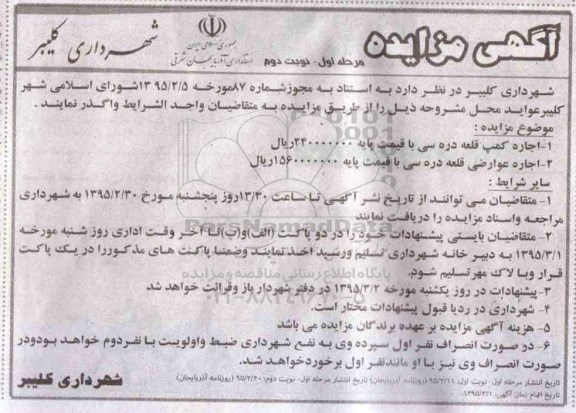 آگهی مزایده
مرحله اول - نوبت دوم
جمهوری اسلامی ایران
استانداری آذربایجان شرقی
شهرداری کلیبر
شهرداری کلیبر در نظر دارد به استناد به مجوزشماره ۸۷مورخه ۱۳۹۵/۲/۵شورای اسلامی شهر
کلیبرعواید محل مشروحه ذیل را از طریق مزایده به متقاضیان واجد الشرایط واگذر نمایند .
موضوع مزایده :
۱-اجاره کمپ قلعه دره سی با قیمت پایه ۲۴۰۰۰۰۰۰۰ریال
۲-اجاره عوارضی قلعه دره سی با قیمت پایه ۱۵۶۰۰۰۰۰۰۰ریال
سایر شرایط :
۱- متقاضیان می توانند از تاریخ نشر آگهی تا ساعت ۱۳/۳۰روز پنجشنبه مورخ ۱۳۹۵/۲/۳۰ به شهرداری
مراجعه واسناد مزایده را دریافت نمایند
۲- متقاضیان بایستی پیشنهادات خود را در دو پاکت (الف)و(ب)تا آخر وقت اداری روز شنبه مورخه
۱۳۹۵/۳/۱ به دبیر خانه شهرداری تسلیم ورسید اخذ نمایند وضمنا پاکت های مذکوررا در یک پاکت
قرار وبا لاک مهر تسلیم شوم.
۳-پیشنهادات در روز یکشنبه مورخه ۱۳۹۵/۳/۲ در دفتر شهردار باز وقرائت خواهد شد
۴- شهرداری در ردیا قبول پیشنهادات مختار است.
۵- هزینه آگهی مزایده بر عهده برندگان مزایده می باشد
۶- در صورت انصراف نفر اول سپرده وی به نفع شهرداری ضبط واولویت با نفردوم خواهد بودودر
صورت انصراف وی نیز با او مانندنفر اول برخوردخواهد شد.
تاریخ انتشار مرحله اول- نوبت اول: ۹۵/۲/۱۱ (روزنامه آذربایجان) تاریخ انتشار مرحله اول - نوبت دوم: ۹۵/۲/۲۰ (روزنامه آذربایجان)
تاریخ اتمام زمان آگهی: ۱۳۹۵/۳/۱
شهرداری کلیبر
ParsNamadData
پایگاه اطلاع رسانی مناقصه و مزایده
۰۲۱-۸۸۳۴۹۶۷۰-۵